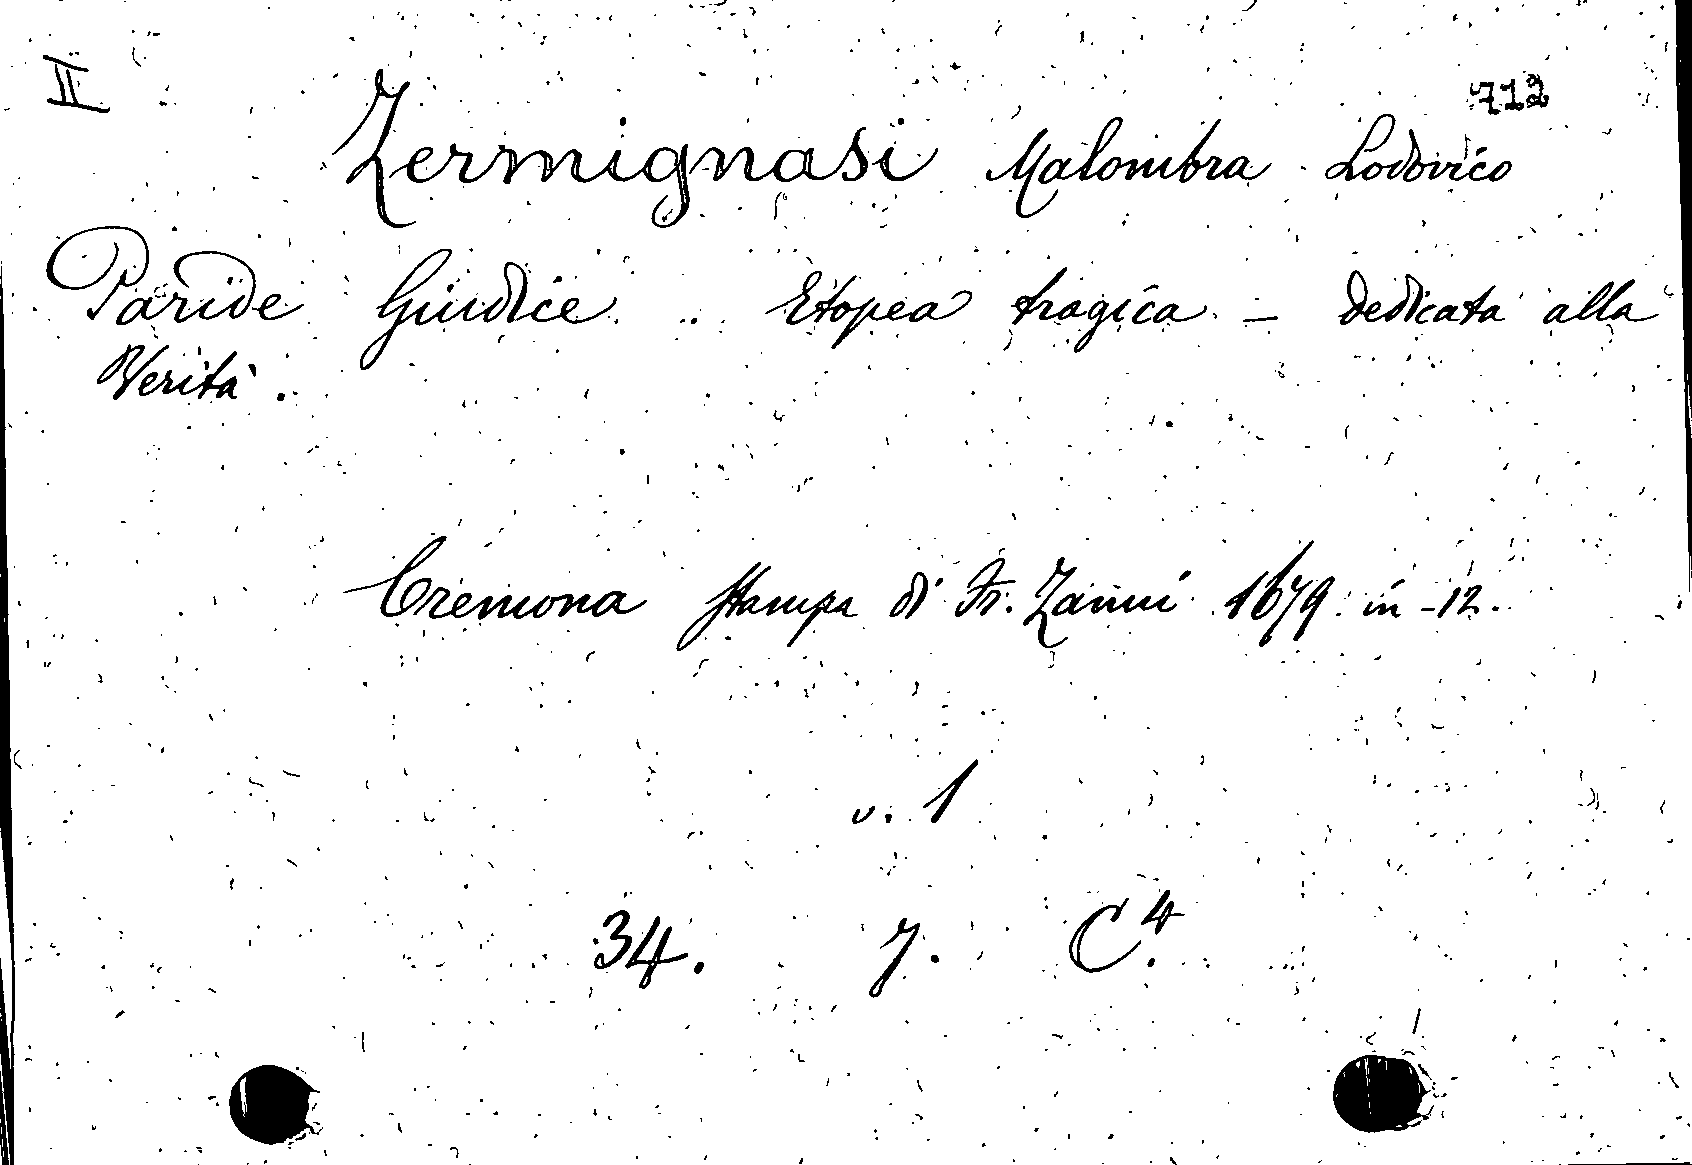 II
712
Zermignasi Malombra Lodovico
Paride Giudice .. Etopea tragica – dedicata alla
Verità.
Cremona Stampa di Fr. Zanni 1679 in -12.
v. 1
34. 7. C⁴.